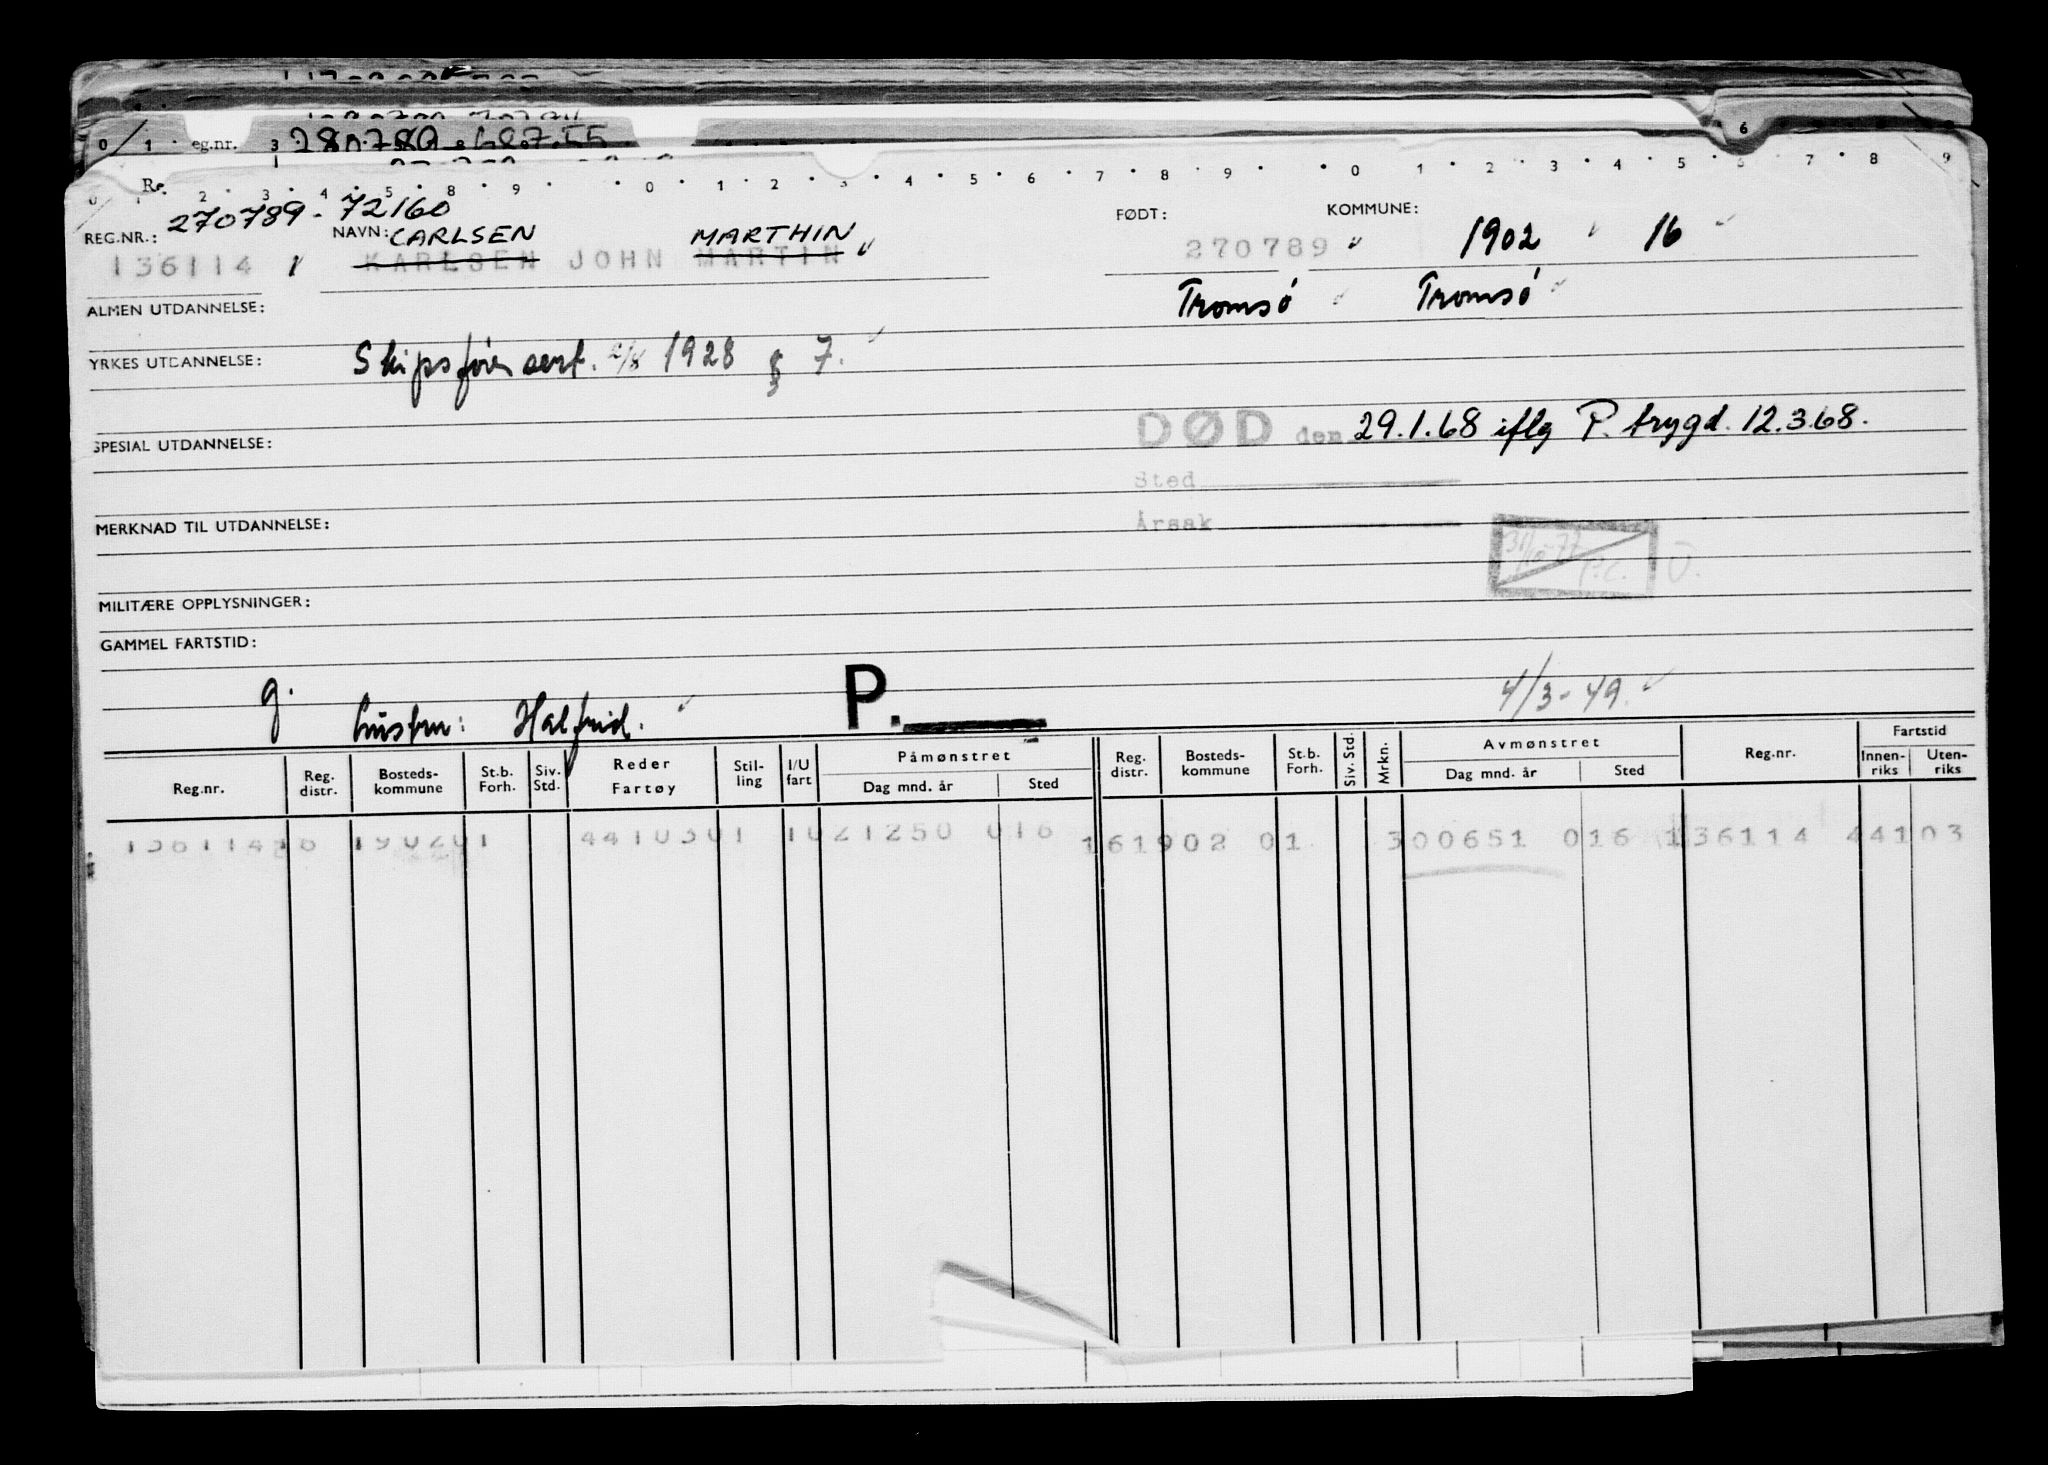 0 1 eg.nr. 3 280789 - 68755 6
Re. 2 3 4 5 8 9 0 1 2 3 4 5 6 7 8 9 0 1 2 3 4 5 6 7 8 9
270789 - 72160
REG.NR.: NAVN: CARLSEN MARTHIN FØDT: KOMMUNE:
136114 KARLSEN JOHN MARTIN 270789 1902 16
ALMEN UTDANNELSE: Tromsö Tromsö
YRKES UTDANNELSE: Skipsförersert. 2/8 1928 § 7.
SPESIAL UTDANNELSE: DØD den 29.1.68 iflg P. trygd. 12.3.68.
Sted
MERKNAD TIL UTDANNELSE: Årsak
31/10-77 P.C.
MILITÆRE OPPLYSNINGER:
GAMMEL FARTSTID:
g. hustru: Halfrid. P. 4/3-49.
Reg.nr. Reg. distr. Bosteds-kommune St.b. Forh. Siv. Std. Reder Fartøy Stil-ling I/U fart Påmønstret Dag mnd. år Sted Reg. distr. Bosteds-kommune St.b. Forh. Siv. Std. Mrkn. Avmønstret Dag mnd. år Sted Reg.nr. Fartstid Innen-riks Uten-riks
136114 16 1902 01 4410301 10 21250 016 16 1902 01 300651 016 136114 44103